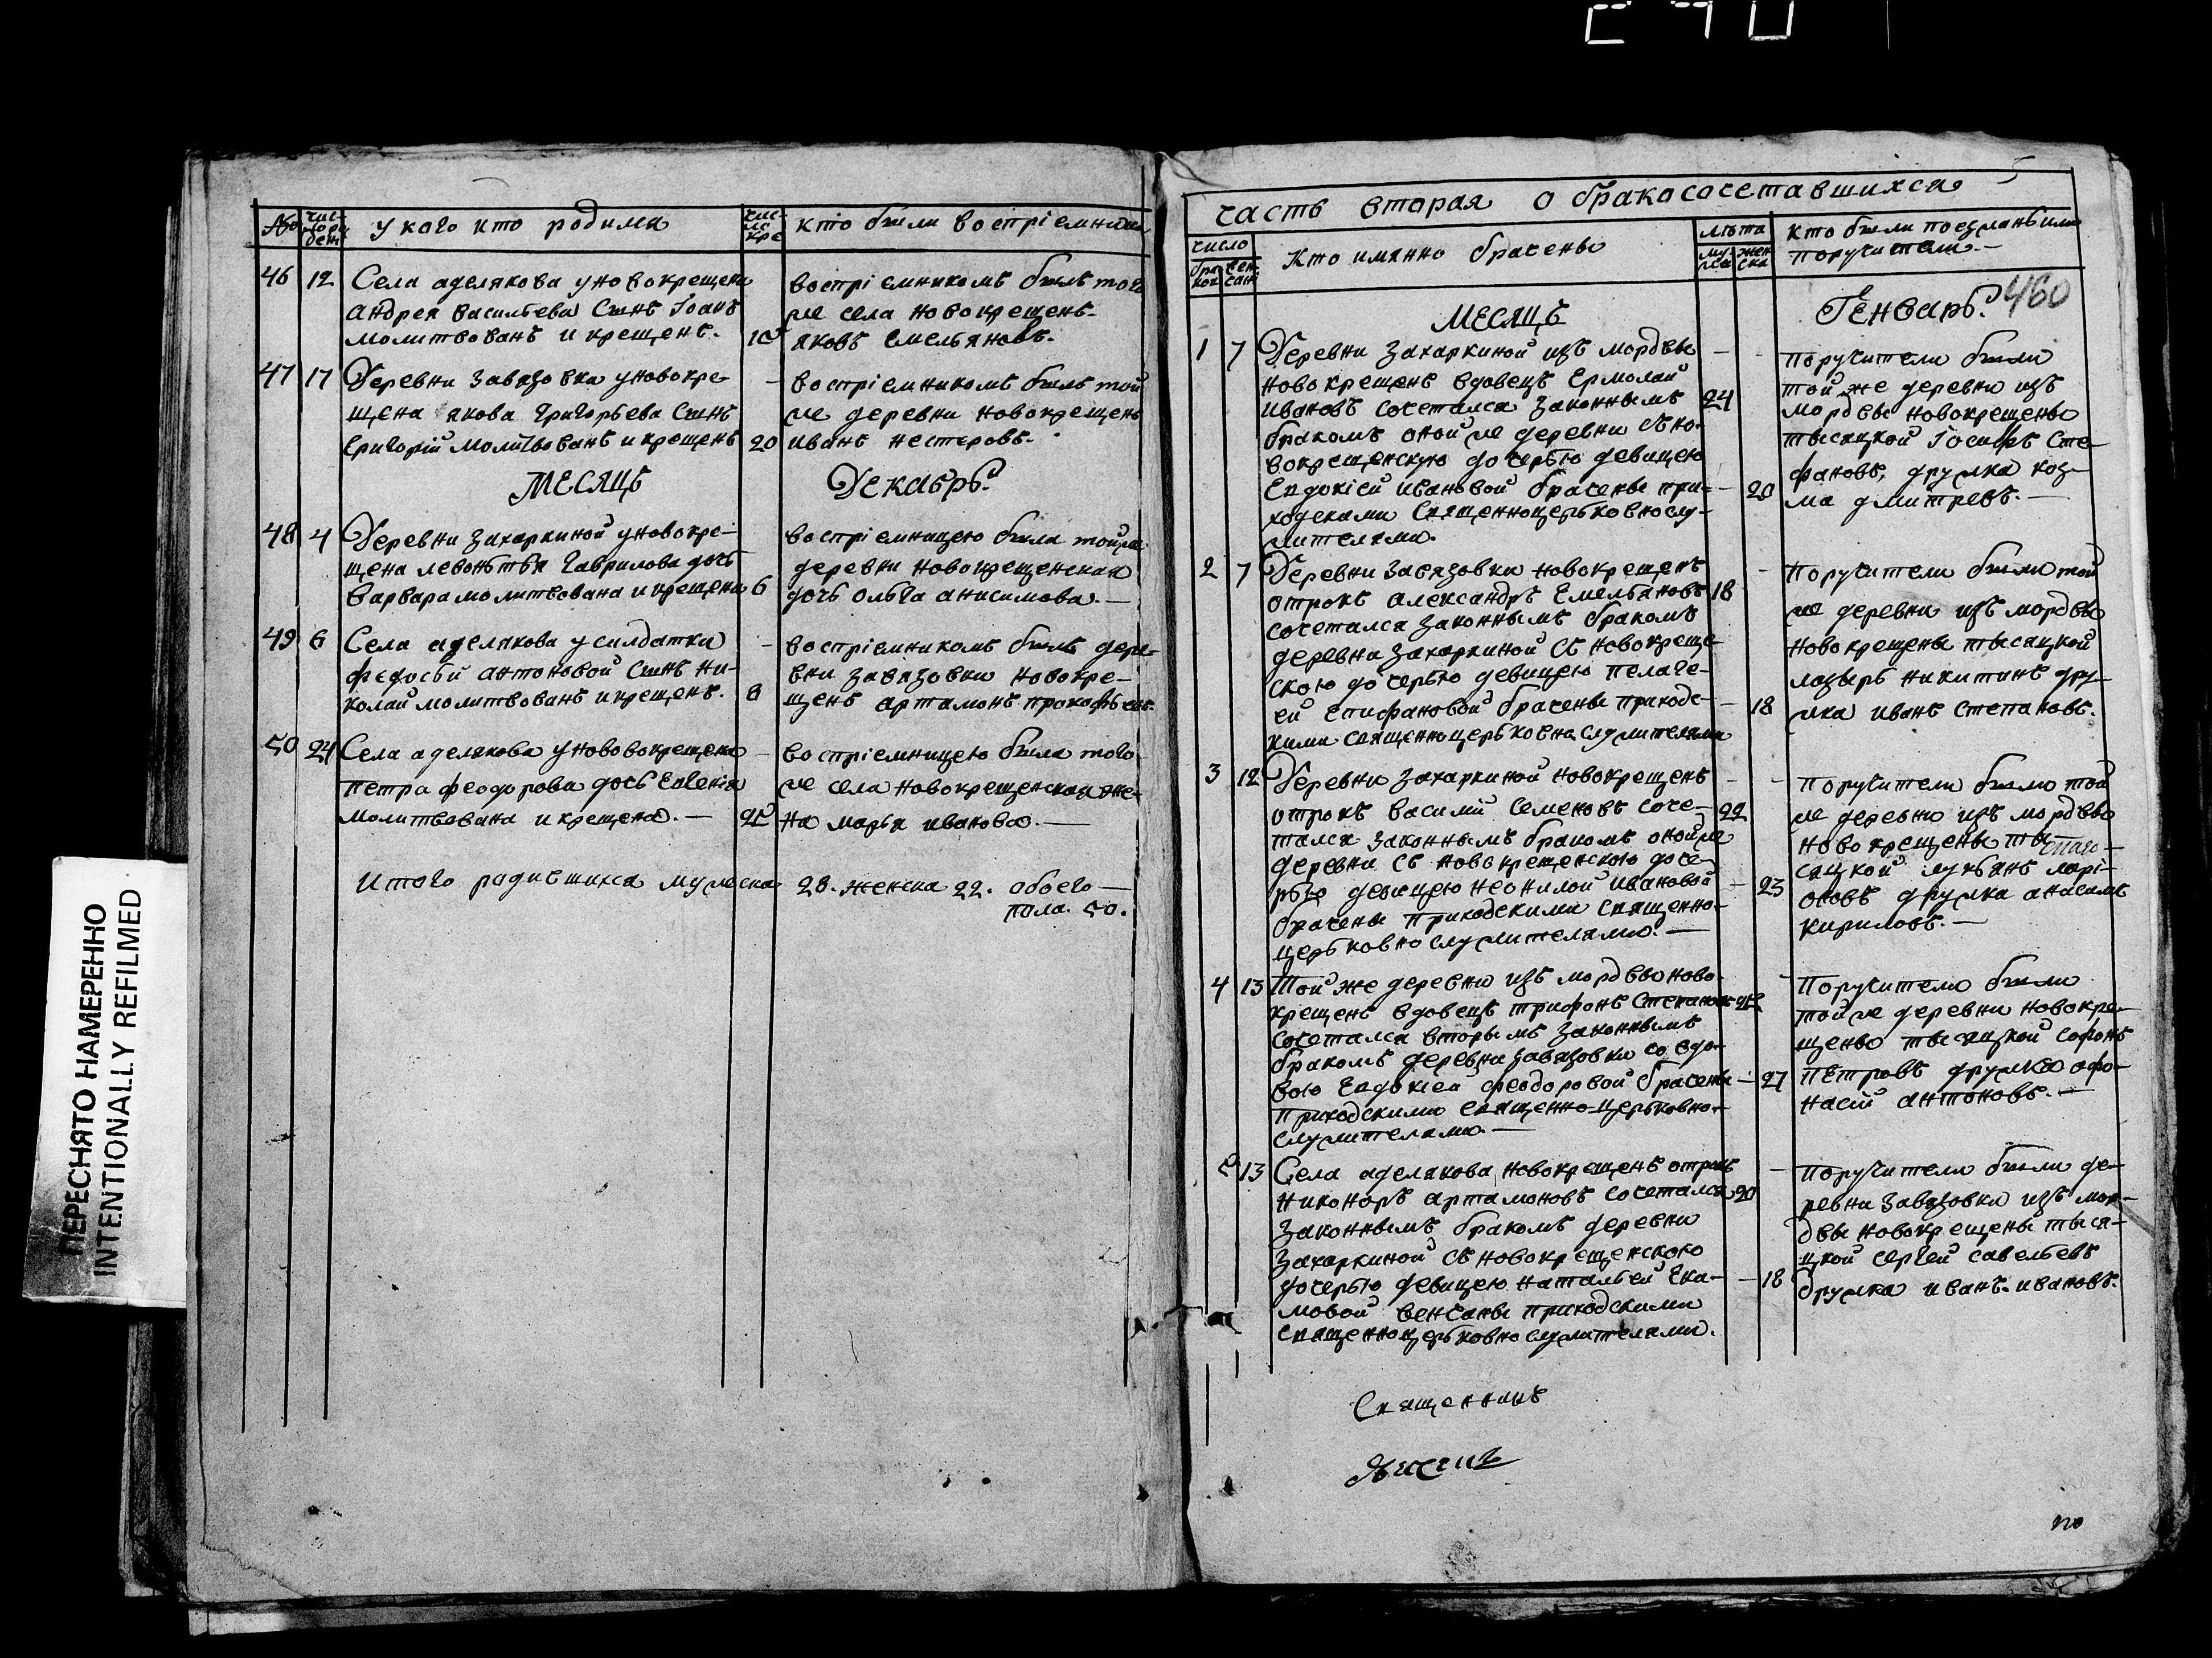 ПЕРЕСНЯТО НАМЕРЕННО
INTENTIONALLY REFILMED
№
чис-
ло ро
дені
у кого кто родился
чис-
ло
кре
кто были воспріемники
46 12 Села аделякова уновокрещена
андрея васильева Сынъ Іоанъ
молитвованъ и крещенъ. 15
воспріемникомъ былъ того
же села новокрещенъ
яковъ емельяновъ.
47 17 Деревни завязовка уновокре-
щена якова григорьева Сынъ
григорій молитвованъ и крещенъ 20
воспріемникомъ былъ той
же деревни новокрещенъ
иванъ нестеровъ.
МЕСЯЦЪ Декабрь.
48 4 Деревни захаркиной уновокре-
щена левонтья гаврилова дочь
варвара молитвована и крещена 6
воспріемницею была той же
деревни новокрещенская
дочь ольга анисимова.
49 6 Села аделякова у салдатки
федосьи антоновой Сынъ ни-
колай молитвованъ и крещенъ. 8
воспріемникомъ былъ дере-
вни завязовки новокре-
щенъ артамонъ прокофьевъ.
50 24 Села аделякова уновокрещена
петра феодорова дочь Евгенія
молитвована и крещена. 25
воспріемницею была того
же села новокрещенская же-
на марья иванова.
Итого родившихся мужеска 28. женска 22. обоего
пола. 50.
часть вторая о бракосочетавшихся
число
бра
ков
вен
чан
Кто имянно брачены
лѣта
му-
жес
жен
ска
кто были поезжаны или
поручители.
460
МЕСЯЦЪ Генварь.
1 7 Деревни захаркиной изъ мордвы
новокрещенъ вдовецъ Ермолай
ивановъ сочетался законнымъ 24
бракомъ оной же деревни съ но-
вокрещенскую дочерью девицею
Евдокіей ивановой брачены при- 20
ходскими Священноцерьковнослу-
жителями.
поручители были
той же деревни изъ
мордвы новокрещены
тысяцкой Іосифъ Сте-
фановъ, дружка коз-
ма дмитревъ.
2 7 Деревни завязовки новокрещенъ
отрокъ александръ Емельяновъ 18
сочетался законнымъ бракомъ
деревни захаркиной съ новокреще-
скою дочерью девицею пелаге-
ей Епифановой брачены приходс- 18
кими священноцерьковнослужителями
поручители были той
же деревни изъ мордвы
новокрещены тысяцкой
лазырь никитинъ дру-
жка иванъ степановъ.
3 12 Деревни захаркиной новокрещенъ
отрокъ василій семеновъ соче- 22
тался законнымъ бракомъ оной же
деревни съ новокрещенскою доче-
рью девицею неонилой ивановой 23
брачены приходскими священно-
церьковнослужителями.
поручители были той
же деревни изъ мордвы
новокрещены ты
сяцкой лукьянъ ларі-
оновъ дружка анисимъ
кириловъ.
4 13 Той же деревни изъ мордвы ново-
крещенъ вдовецъ трифонъ Степановъ
сочетался вторымъ законнымъ
бракомъ деревни завязовки со вдо-
вою Евдокіей феодоровой брачены 27
приходскими священно-церьковно-
служителями.
поручители были
той же деревни новокре-
щены тысяцкой софонъ
петровъ дружка афо-
насій антоновъ.
5 13 Села аделякова новокрещенъ отрокъ
никоноръ артамоновъ сочетался 20
законнымъ бракомъ деревни
захаркиной съ новокрещенскою
дочерью девицею натальей Ека- 18
мовой венчаны приходскими
священноцерьковнослужителями.
поручители были де-
ревни завязовки изъ мор-
двы новокрещены тыся-
цкой сергей савельевъ
дружка иванъ ивановъ.
Священникъ
по